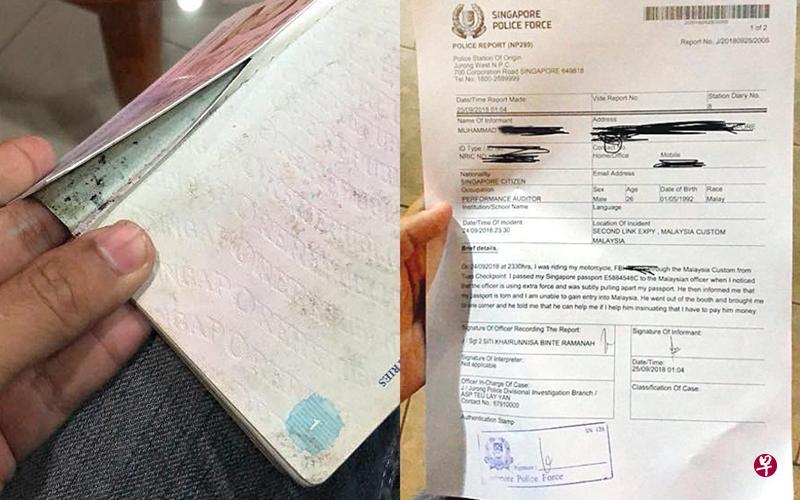 TRIES
1
SINGAPORE
POLICE FORCE
J/20180925/2005
1 of 2
POLICE REPORT (NP299)
Report No. J/20180925/2005
Police Station Of Origin
Jurong West N.P.C
700 Corporation Road SINGAPORE 649818
Tel No: 1800-2689999
Date/Time Report Made
Vide Report No.
Station Diary No.
25/09/2018 01:04
8
Name Of Informant
Address
MUHAMMAD
ID Type /
Contact No.
NRIC NO
Home/Office
Mobile
Nationality
Email Address
SINGAPORE CITIZEN
Occupation
Sex
Age
Date of Birth
Race
PERFORMANCE AUDITOR
Male
26
01/05/1992
Malay
Institution/School Name
Language
Date/Time Of Incident
Location Of Incident
24/09/2018 23:30
SECOND LINK EXPY , MALAYSIA CUSTOM
MALAYSIA
Brief details.
On 24/09/2018 at 2330hrs, I was riding my motorcycle, through the Malaysia Custom from
Tuas Checkpoint. I passed my Singapore passport E5884548C to the Malaysian officer when I noticed
that the officer is using extra force and was subtly pulling apart my passport. He then informed me that
my passport is torn and I am unable to gain entry into Malaysia. He went out of the booth and brought me
to one corner and he told me that he can help me if I help him insinuating that I have to pay him money
Signature Of Officer Recording The Report:
Signature Of Informant:
Sgt 2 SITI KHAIRUNNISA BINTE RAMANAH
Signature Of Interpreter:
Not applicable
Date/Time:
25/09/2018 01:04
Officer In-Charge Of Case:
J / Jurong Police Divisional Investigation Branch /
ASP TEU LAY YAN
Contact No.: 67910000
Classification Of Case:
Authentication Stamp
SN 126
Signature :
Singapore Police Force
早